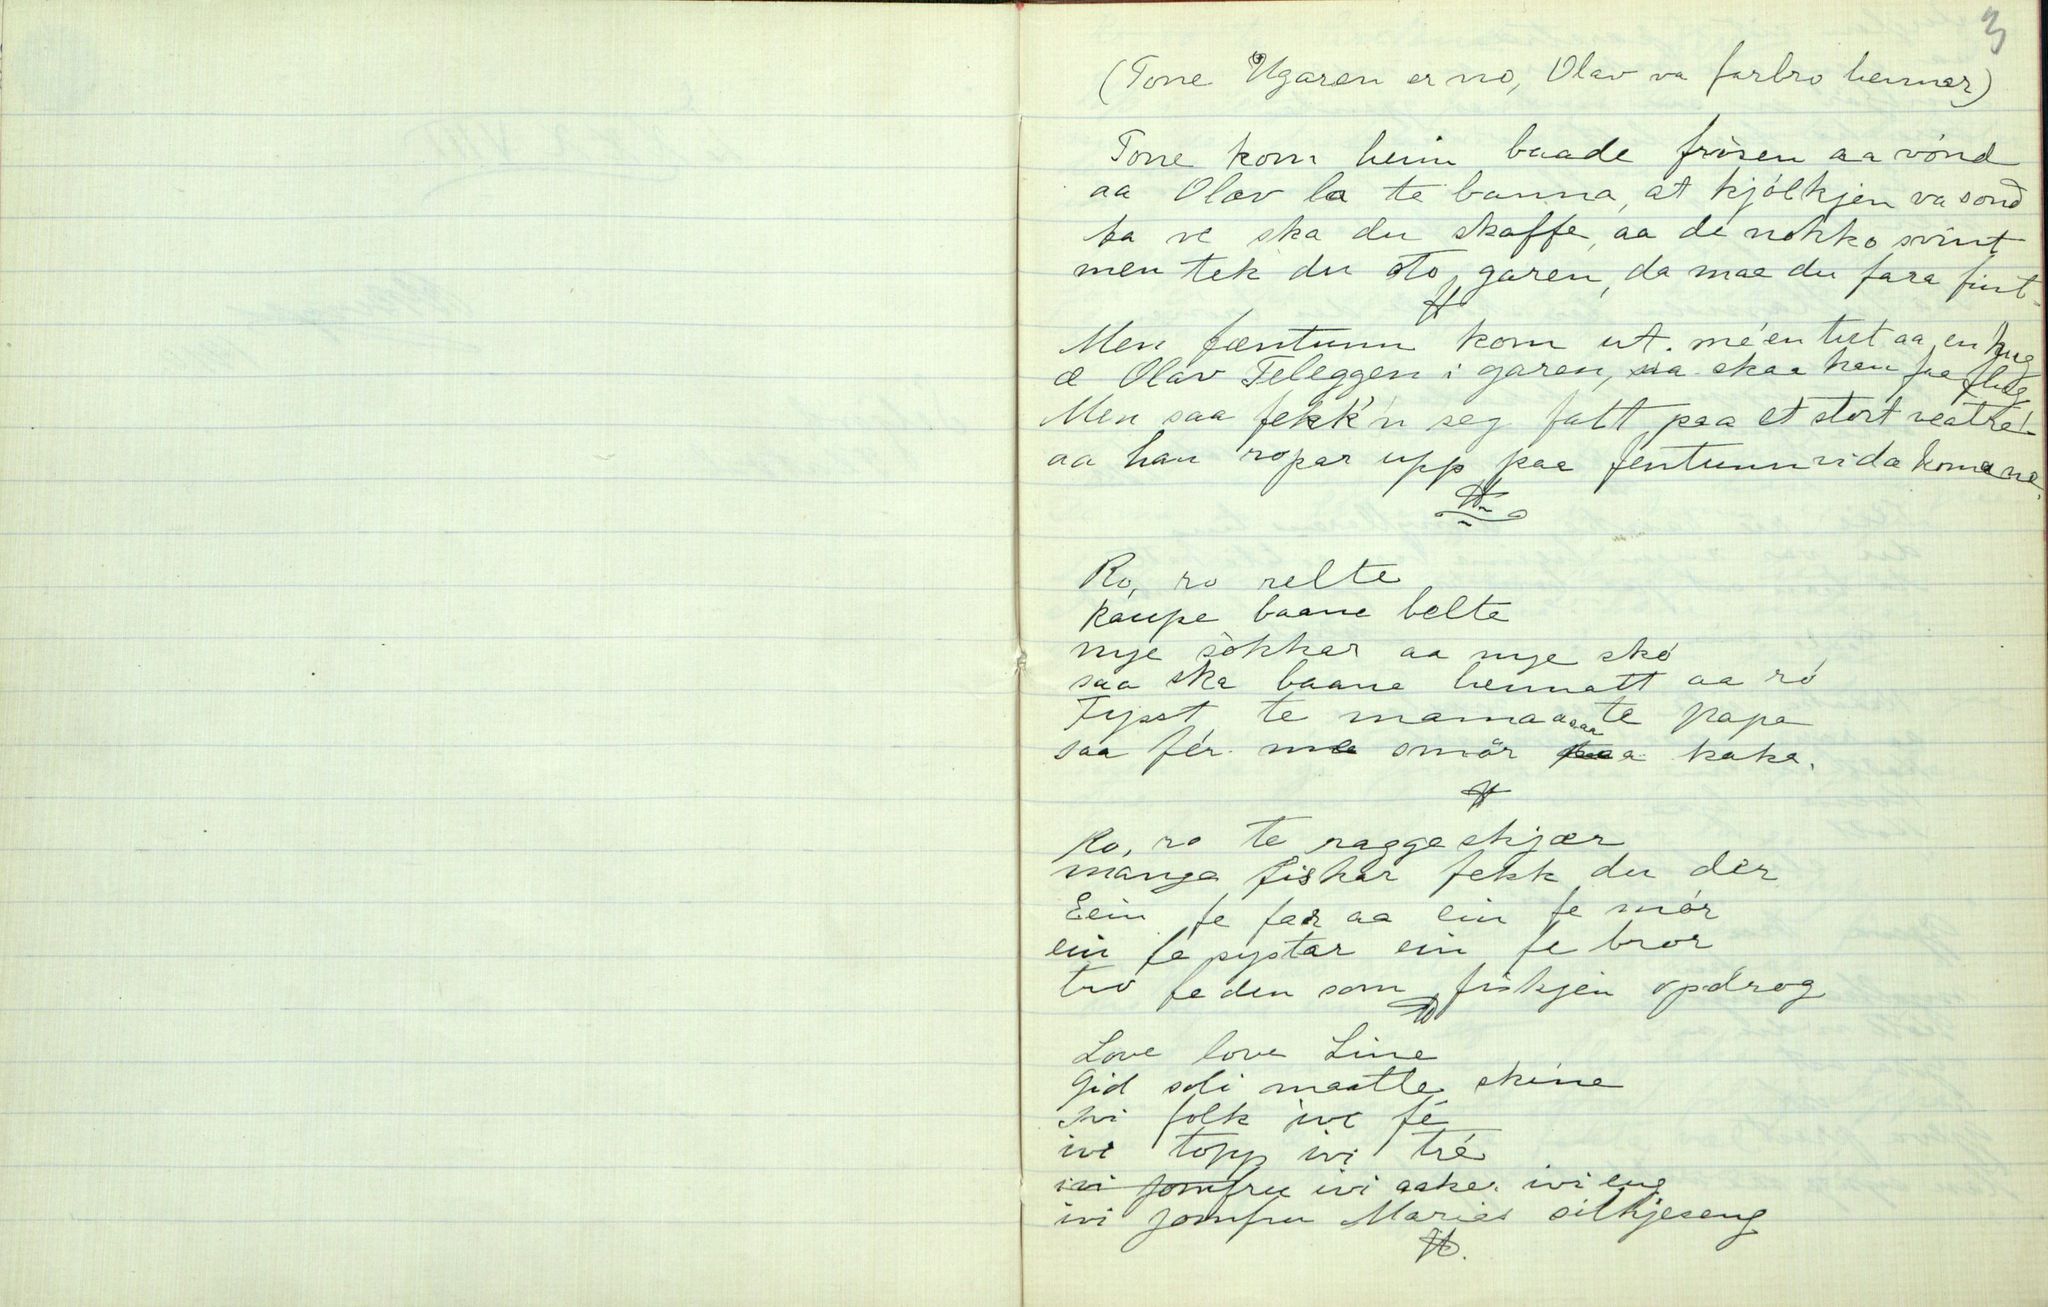 3
(Tone Ugaren er no, Olav va farbro hennar)
Tone kom heim baade fròsen aa vónd
aa Olav la te banna, at kjólkjen va sond
ta ve ska du skaffe, aa de nokko svint
men tek du sto, garen, da mae du fara fint
Men fæntunn kom ut. mé en tut aa en hug
æ Olav Teleggen i garen, saa skaa han faa flug
Men saa fekk'n seg fatt paa et stort veatré
aa han ropar upp paa fentunn vida koma ne.
Ro, ro relte
kaupe baane belte
nye sòkkar aa nye skó
saa ska baane hennatt aa ró
Fysst te mama saa te papa
saa fér me smör paa kaka.
Ro, ro te ragge skjær
mange fiskar fekk du der
Eein fe far aa ein fe mór
ein fe systar ein fe bror
tvo fe den som fiskjen opdrog
Love love Line
Gid soli maatte skine
ivi folk ivi fé
ivi topp ivi tré
ivi jomfru ivi aaker ivi eng
ivi jomfru Marias silkjeseng